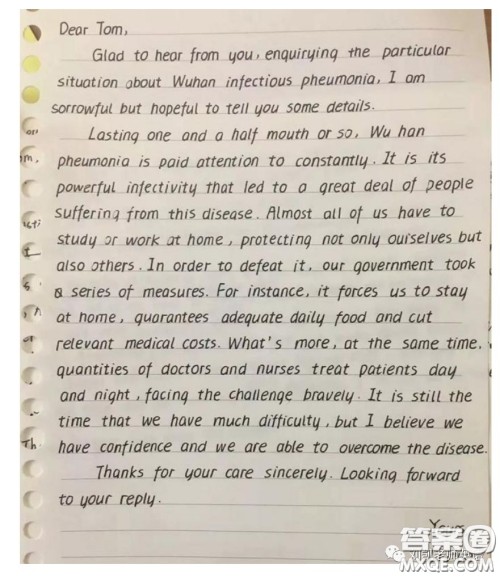 Dear Tom,
Glad to hear from you, enquirying the particular
situation about Wuhan infectious pheumonia, I am
sorrowful but hopeful to tell you some details.
Lasting one and a half mouth or so, Wu han
pheumonia is paid attention to constantly. It is its
powerful infectivity that led to a great deal of people
suffering from this disease. Almost all of us have to
study or work at home, protecting not only ourselves but
also others. In order to defeat it, our government took
a series of measures. For instance, it forces us to stay
at home, guarantees adequate daily food and cut
relevant medical costs. What's more, at the same time,
quantities of doctors and nurses treat patients day
and night, facing the challenge bravely. It is still the
time that we have much difficulty, but I believe we
have confidence and we are able to overcome the disease.
Thanks for your care sincerely. Looking forward
to your reply.
Yours
答案圈
MXQE.COM